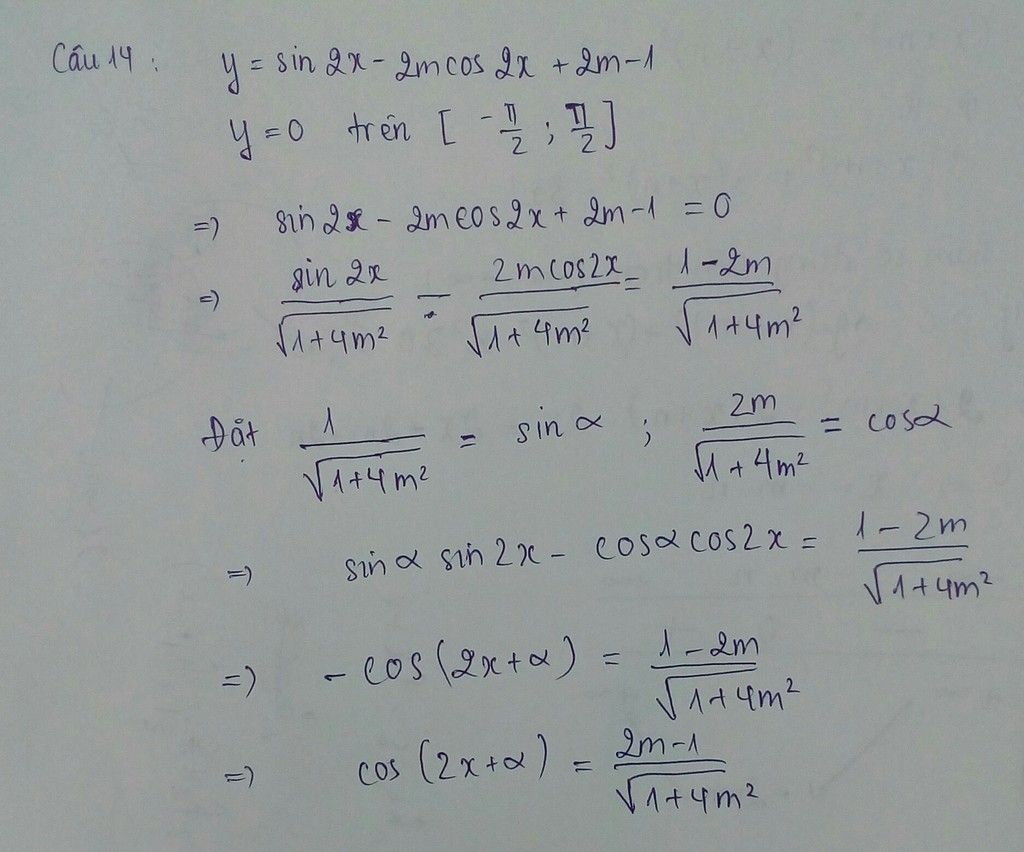 Câu 14 : y = sin 2x - 2m cos 2x + 2m - 1
y = 0 trên [ -π/2 ; π/2 ]
=> sin 2x - 2m cos 2x + 2m - 1 = 0
=> sin 2x / √(1+4m²) - 2m cos 2x / √(1+4m²) = (1 - 2m) / √(1+4m²)
Đặt 1 / √(1+4m²) = sin α ; 2m / √(1+4m²) = cos α
=> sin α sin 2x - cos α cos 2x = (1 - 2m) / √(1+4m²)
=> - cos (2x + α) = (1 - 2m) / √(1+4m²)
=> cos (2x + α) = (2m - 1) / √(1+4m²)